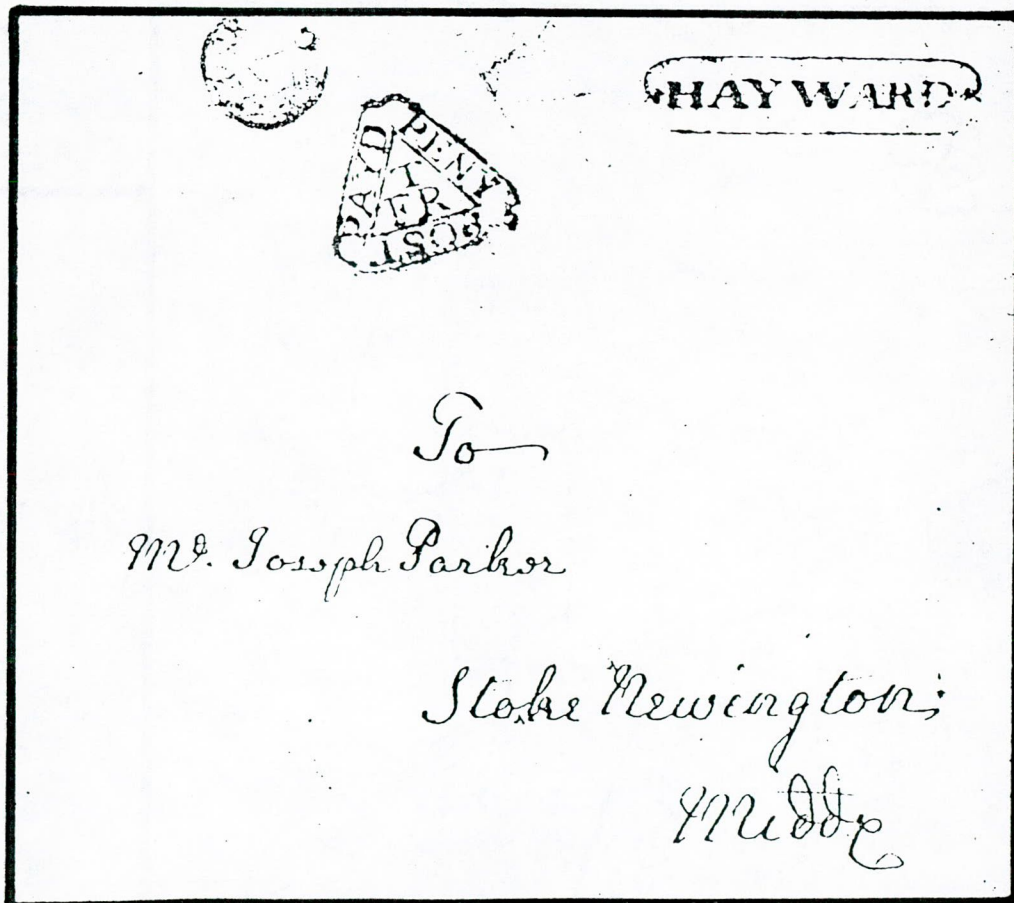 HAYWARD
PENY
POST
PAYD
T
FR
To
Mr. Joseph Parker
Stoke Newington;
Middx